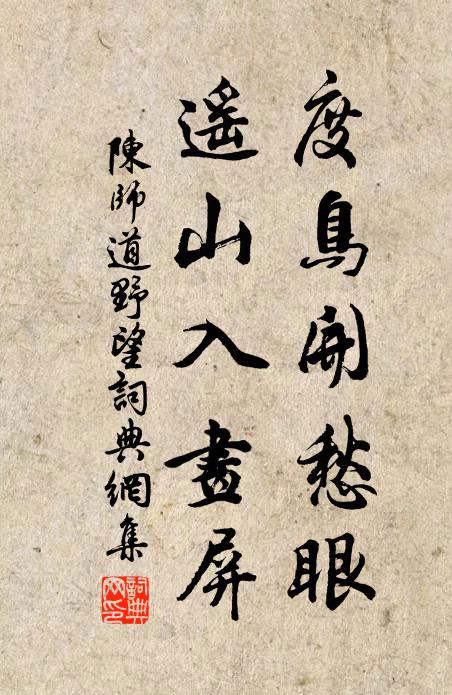 度鳥開愁眼
遥山入畫屏
陳師道野望詞典網集
詞典网印